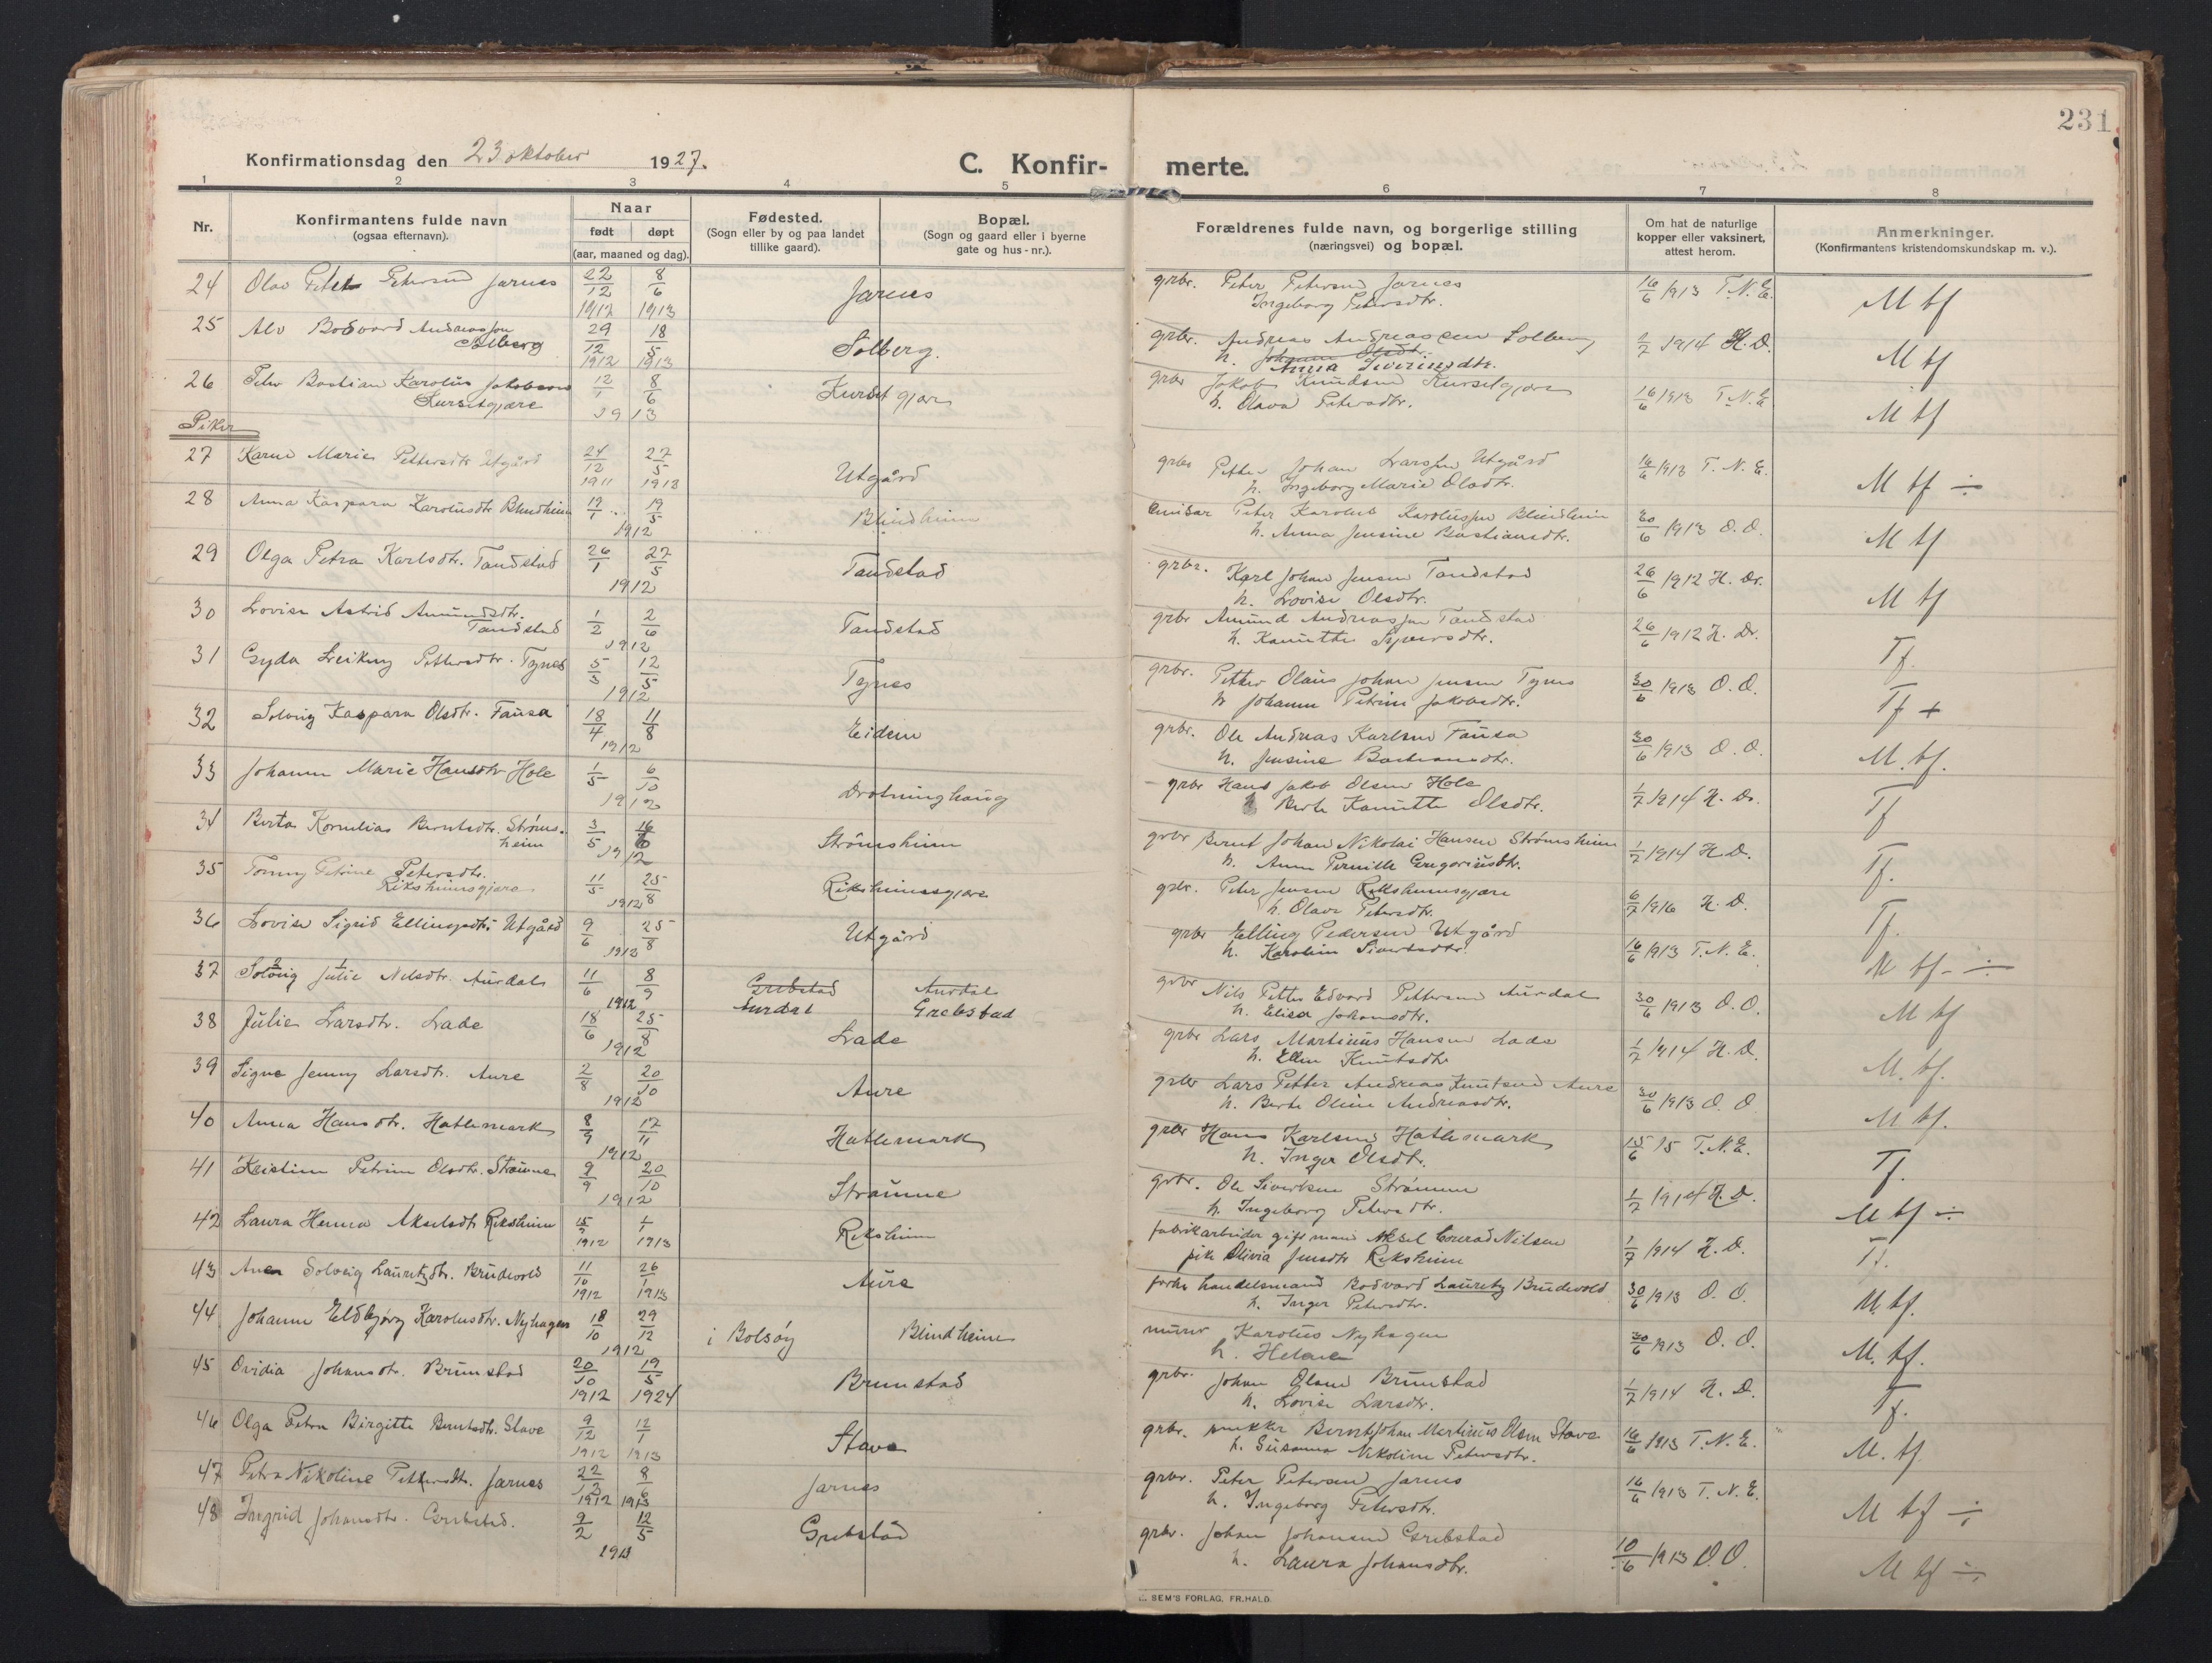 231
Konfirmationsdag den 23 oktober 1927.
C. Konfir- merte.
1 2 3 4 5 6 7 8
Nr.
Konfirmantens fulde navn
(ogsaa efternavn).
Naar
født døpt
(aar, maaned og dag).
Fødested.
(Sogn eller by og paa landet
tillike gaard).
Bopæl.
(Sogn og gaard eller i byerne
gate og hus-nr.).
Forældrenes fulde navn, og borgerlige stilling
(næringsvei) og bopæl.
Om hat de naturlige
kopper eller vaksinert,
attest herom.
Anmerkninger.
(Konfirmantens kristendomskundskap m. v.).
24 Olav Peter Petersen Jarnes 22/12 1912 8/6 1913 Jarnes grbr. Peter Petersen Jarnes 16/6 1913 T. N. E. M tf
Ingeborg Petersdtr.
25 Alv Bodvard Andreassen 29/12 1912 18/5 1913 Solberg. grbr. Andreas Andreassen Solberg 2/7 1914 H. D. M tf
Solberg h. Johanne Olsdtr.
Anna Severinsdtr.
26 Peter Bastian Karolius Jakobsen 12/1 8/6 1913 Kursetgjære grbr Jakob Knudsen Kursetgjære 16/6 1913 T. N. E. M tf
Kursetgjære h. Olava Petersdtr.
Piker
27 Karen Marie Pettersdtr Utgård 24/12 1911 27/5 1913 Utgård grbr Petter Johan Larsen Utgård 16/6 1913 T. N. E. M tf ÷
h. Ingeborg Marie Olsdtr.
28 Anna Kaspara Karolusdtr Blindheim 12/1 19/5 1912 Blindheim Emisær Peter Karolus Karolussen Blindheim 30/6 1913 O. O. M tf
h. Anna Jensine Bastiansdtr.
29 Olga Petra Karlsdtr. Tandstad 26/1 27/5 1912 Tandstad grbr. Karl Johan Jensen Tandstad 26/6 1912 H. Dr. M tf
h. Lovise Olsdtr.
30 Lovise Astrid Amundsdtr. 1/2 2/6 1912 Tandstad grbr Amund Andreassen Tandstad 26/6 1912 H. Dr. Tf.
Tandstad h. Kanutte Sjursdtr.
31 Gyda Pettersdtr. Tynes 5/3 12/5 1912 Tynes grbr. Petter Olaus Johan Jensen Tynes 30/6 1913 O. O. Tf +
h Johanne Petrine Jakobsdtr.
32 Solveig Kaspara Olsdtr. Fausa 18/4 11/8 1912 Eidem grbr. Ole Andreas Karlsen Fausa 30/6 1913 O. O. M. tf.
h. Jensine Bastiansdtr.
33 Johanne Marie Hansdtr Hole 1/5 6/10 1912 Drotninghaug grbr Hans Jakob Olsen Hole 1/7 1914 H. D. Tf
h Berte Kanutte Olsdtr.
34 Berta Kornelia Berntsdtr. Strøms- 3/5 16/6 1912 Strømsheim grbr Bernt Johan Nikolai Hansen Strømsheim 1/7 1914 H. D. Tf.
heim h. Anne Pernille Gregoriusdtr.
35 Tommy Petrine Petersdtr. 11/5 25/8 1912 Riksheimsgjære grbr. Peter Jensen Riksheimsgjære 6/7 1916 H. D. Tf.
Riksheimsgjære h. Olave Petersdtr.
36 Lovise Sigrid Ellingsdtr. Utgård 9/6 25/8 1912 Utgård grbr Elling Pedersen Utgård 16/6 1913 T. N. E. M tf - ÷
h. Karoline Sivertsdtr.
37 Solveig Julie Nilsdtr. Aurdal 11/6 8/9 1912 Grebstad Aurdal grbr Nils Petter Edvard Pettersen Aurdal 30/6 1913 O. O. M tf
Aurdal Grebstad h. Elisa Johansdtr.
38 Julie Larsdtr. Lade 18/6 25/8 1912 Lade grbr Lars Martinus Hansen Lade 1/7 1914 H. D. M. tf.
h. Ellen Knutsdtr
39 Signe Jenny Larsdtr. Aure 2/8 20/10 1912 Aure grbr Lars Petter Andreas Knutsen Aure 30/6 1913 O. O M tf.
h. Berte Oline Andreasdtr.
40 Anna Hansdtr. Hatlemark 8/9 17/11 1912 Hatlemark grbr Hans Karlsen Hatlemark 15/6 15 T. N. E. Tf.
h. Inger Olsdtr.
41 Kristine Petrine Olsdtr. Strømme 9/9 20/10 1912 Strømme grbr. Ole Sivertsen Strømme 1/7 1914 H. D. M tf ÷
h. Ingeborg Petersdtr.
42 Laura Henna Akselsdtr Riksheim 15/9 1912 1/1 1913 Riksheim fabrikarbeider gift mand Aksel Conrad Nilsen 1/7 1914 H. D. Tf.
pik Olivia Jensdtr Riksheim
43 Anen Solveig Lauritzdtr. Brudevold 11/10 1912 26/1 1913 Aure forhv handelsmand Bodvard Lauritz Brudevold 30/6 1913 O. O. M. tf.
h. Inger Petersdtr.
44 Johanne Eldbjørg Karolusdtr. Nyhagen 18/10 29/12 1912 i Bolsøy Blindheim murer Karolus Nyhagen 30/6 1913 O. O. M. tf.
h. Helene
45 Ovidia Johansdtr. Brunstad 20/10 1912 19/5 1924 Brunstad grbr. Johan Olsen Brunstad 1/7 1914 H. D. Tf.
h. Lovise Larsdtr.
46 Olga Petra Birgitte Berntsdtr. Stave 9/12 1912 12/1 1913 Stave grbr. snekker Bernt Johan Martinus Olsen Stave 16/6 1913 T. N. E. M. tf.
h. Susanna Nikoline Petersdtr.
47 Petra Nikoline Pettersdtr. Jarnes 22/12 1912 8/6 1913 Jarnes grbr. Peter Petersen Jarnes 16/6 1913 T. N. E. M tf ÷
h. Ingeborg Petersdtr.
48 Ingrid Johansdtr. Grebstad. 9/2 12/5 1913 Grebstad grbr. Johan Johansen Grebstad 10/6 1913 O O. M tf ÷
h. Laura Johansdtr.
SEM'S FORLAG, FR.HALD.